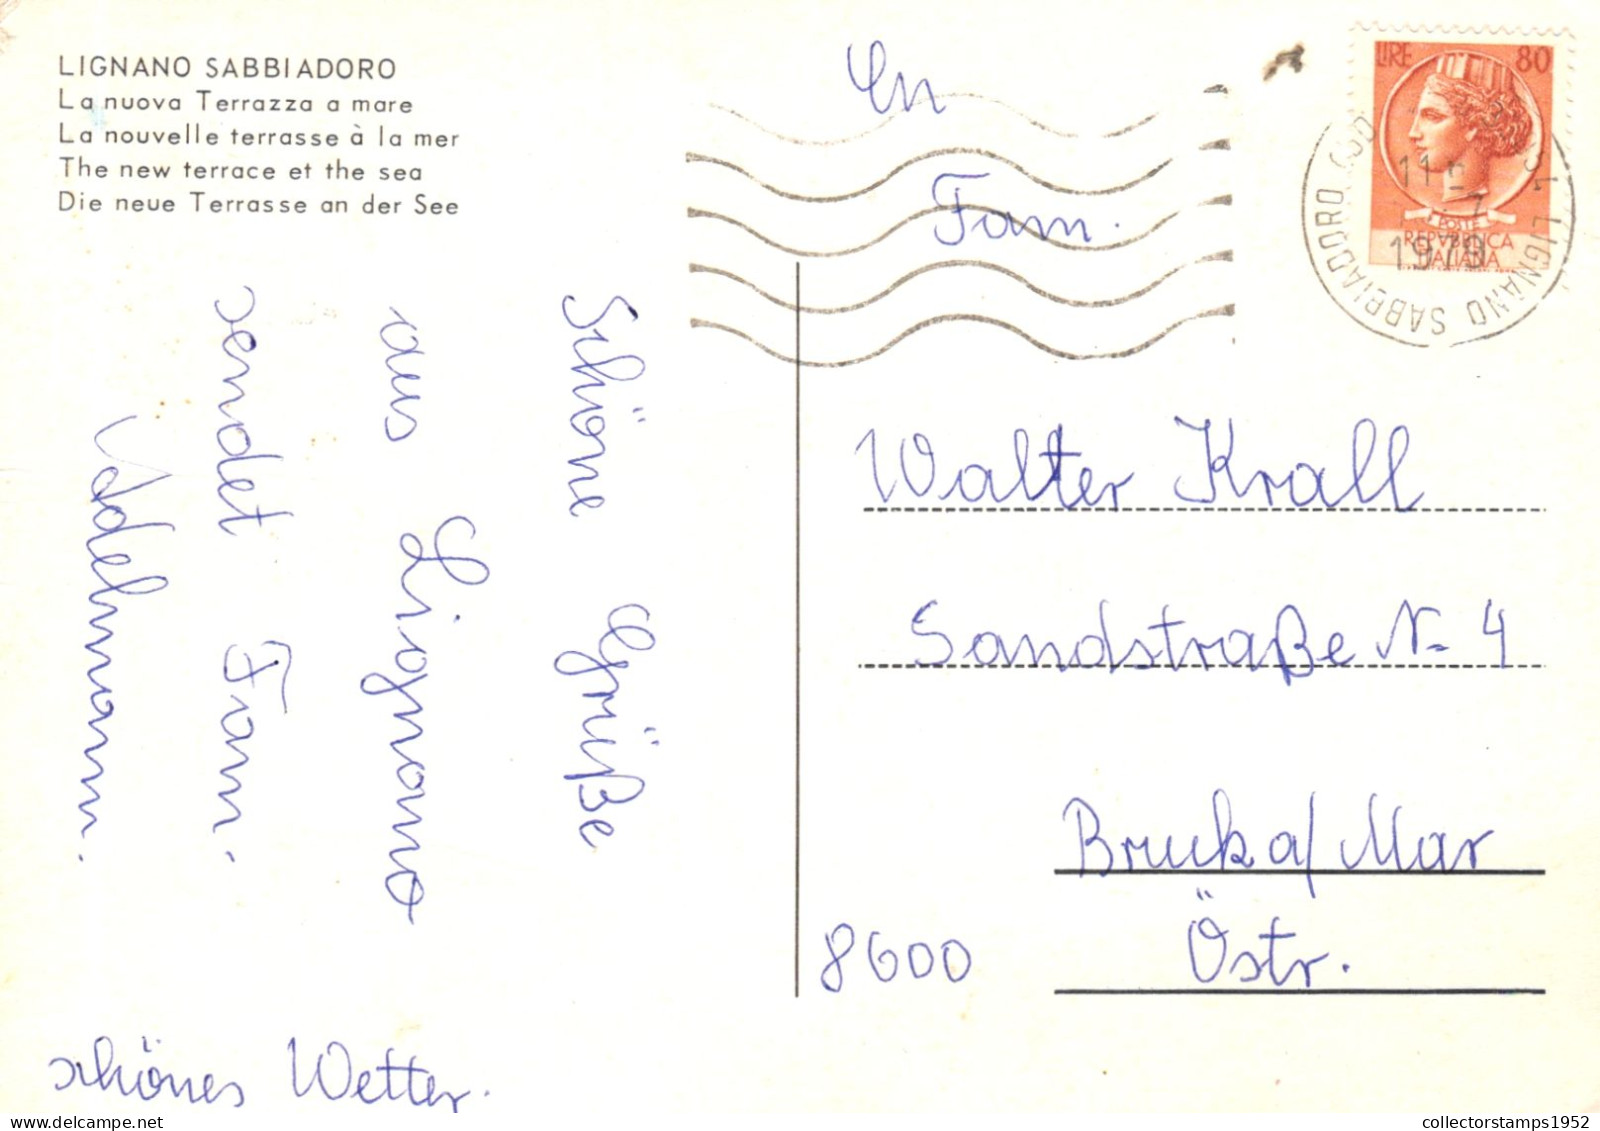 LIGNANO SABBIADORO
La nuova Terrazza a mare
La nouvelle terrasse à la mer
The new terrace et the sea
Die neue Terrasse an der See
Schöne Grüße
aus Lignano
sendet Fam.
Adelmann.
schönes Wetter.
En
Fam.
Walter Krall
Sandstraße N= 4
Bruck a/ Mur
8600 Östr.
LIRE 80
POSTE
REPVBBLICA
ITALIANA
LIGNANO SABBIADORO
11
7
1979
collectorstamps1952